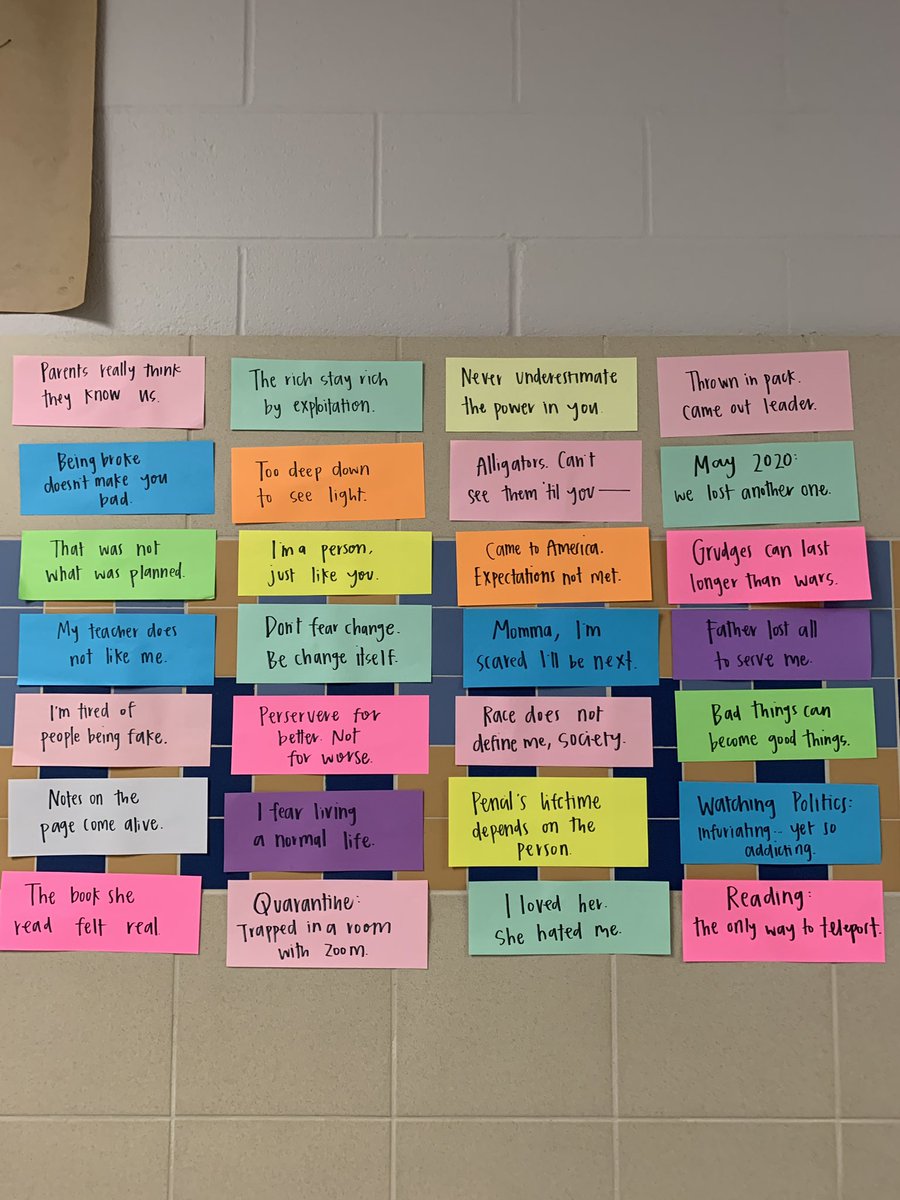 Parents really think
they know us.
The rich stay rich
by exploitation.
Never underestimate
the power in you.
Thrown in pack.
came out leader.
Being broke
doesn't make you
bad.
Too deep down
to see light.
Alligators. Can't
see them 'til you—
May 2020:
we lost another one.
That was not
what was planned.
I'm a person,
just like you.
Came to America.
Expectations not met.
Grudges can last
longer than wars.
My teacher does
not like me.
Don't fear change.
Be change itself.
Momma, I'm
scared I'll be next.
Father lost all
to serve me.
I'm tired of
people being fake.
Perservere for
better. Not
for worse.
Race does not
define me, society.
Bad things can
become good things.
Notes on the
page come alive.
I fear living
a normal life.
Penal's lifetime
depends on the
person.
Watching Politics:
infuriating... yet so
addicting.
The book she
read felt real.
Quarantine:
Trapped in a room
with zoom.
I loved her.
She hated me.
Reading:
the only way to teleport.